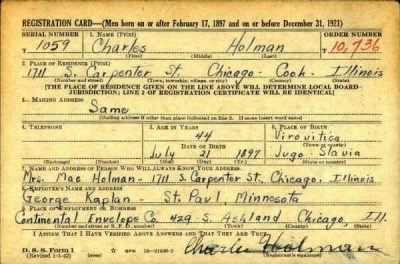 REGISTRATION CARD—(Men born on or after February 17, 1897 and on or before December 31, 1921)
SERIAL NUMBER 1. NAME (Print) ORDER NUMBER
1059 Charles Holman 10,736
(First) (Middle) (Last)
2. PLACE OF RESIDENCE (Print)
1711 S. Carpenter St. Chicago - Cook - Illinois
(Number and street) (Town, township, village, or city) (County) (State)
[THE PLACE OF RESIDENCE GIVEN ON THE LINE ABOVE WILL DETERMINE LOCAL BOARD
JURISDICTION; LINE 2 OF REGISTRATION CERTIFICATE WILL BE IDENTICAL]
3. MAILING ADDRESS
Same
[Mailing address if other than place indicated on line 2. If same insert word same]
4. TELEPHONE 5. AGE IN YEARS 6. PLACE OF BIRTH
44 Virovitica
DATE OF BIRTH (Town or county)
July 21 1897 Jugo-Slavia
(Exchange) (Number) (Mo.) (Day) (Yr.) (State or country)
7. NAME AND ADDRESS OF PERSON WHO WILL ALWAYS KNOW YOUR ADDRESS
Mrs. Mae Holman - 1711 S. Carpenter St. Chicago, Illinois
8. EMPLOYER'S NAME AND ADDRESS
George Kaplan - St. Paul, Minnesota
9. PLACE OF EMPLOYMENT OR BUSINESS
Continental Envelope Co. 429 S. Ashland Chicago, Ill.
(Number and street or R. F. D. number) (Town) (County) (State)
I AFFIRM THAT I HAVE VERIFIED ABOVE ANSWERS AND THAT THEY ARE TRUE.
D. S. S. Form 1
(Revised 1-1-42) (over) Charles Holman